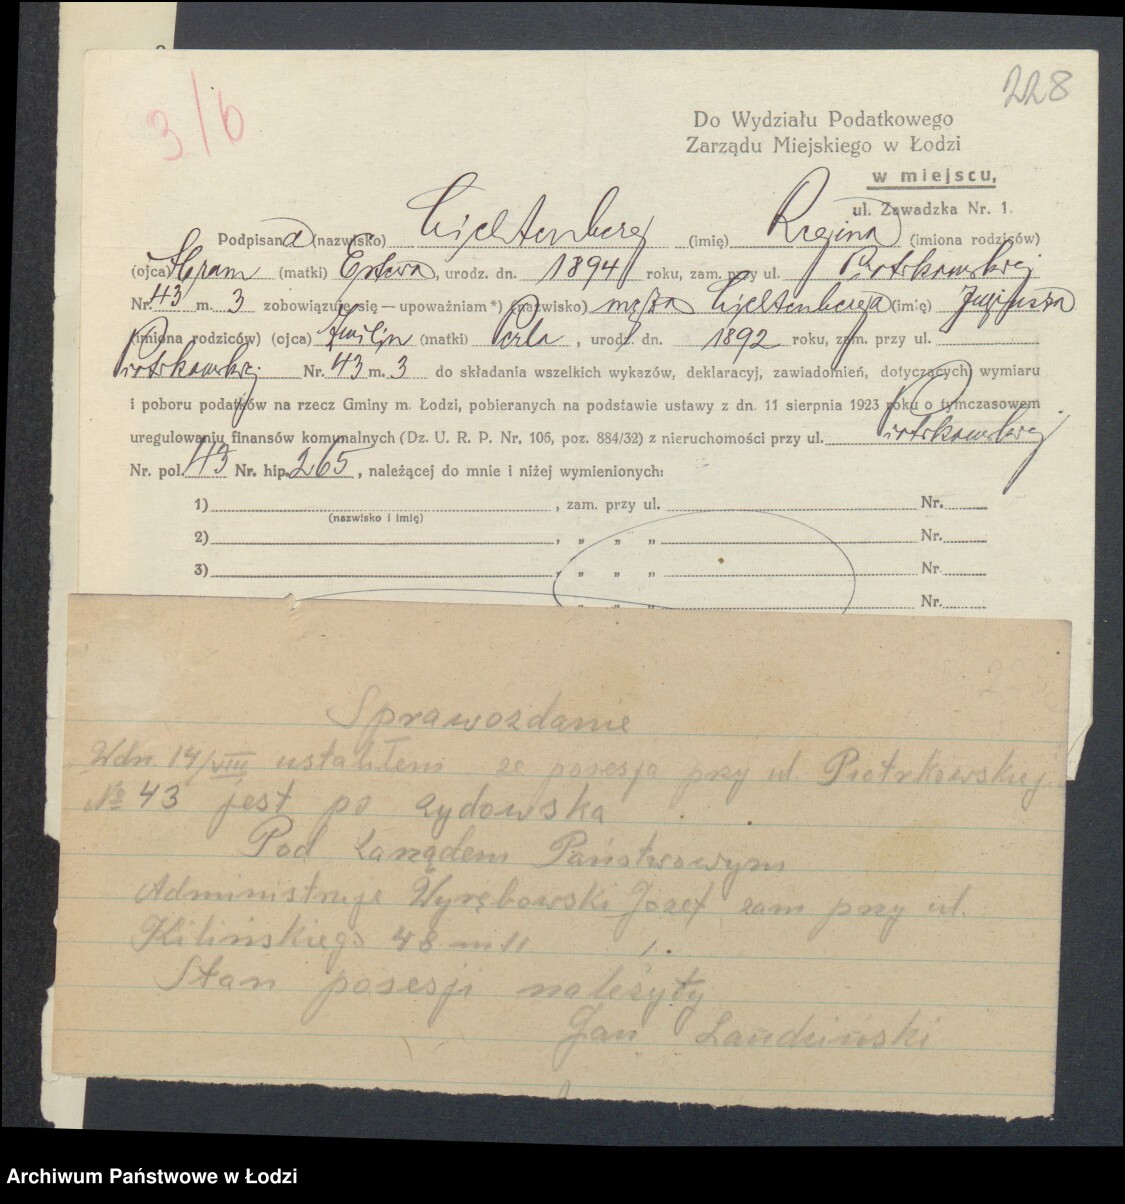 228
3/b
Do Wydziału Podatkowego
Zarządu Miejskiego w Łodzi
w miejscu,
ul. Zawadzka Nr. 1.
Podpisana (nazwisko) Lichtenberg (imię) Regina (imiona rodziców)
(ojca) (matki) Estera, urodz. dn. 1894 roku, zam. przy ul. Piotrkowskiej
Nr. 43 m. 3 zobowiązuję się — upoważniam *) (nazwisko) męża Lichtenberga (imię)
(imiona rodziców) (ojca) (matki) Perla, urodz. dn. 1892 roku, zam. przy ul.
Piotrkowskiej Nr. 43 m. 3 do składania wszelkich wykazów, deklaracyj, zawiadomień, dotyczących wymiaru
i poboru podatków na rzecz Gminy m. Łodzi, pobieranych na podstawie ustawy z dn. 11 sierpnia 1923 roku o tymczasowem
uregulowaniu finansów komunalnych (Dz. U. R. P. Nr. 106, poz. 884/32) z nieruchomości przy ul. Piotrkowskiej
Nr. pol. 43 Nr. hip. 265, należącej do mnie i niżej wymienionych:
1) , zam. przy ul. Nr.
(nazwisko i imię)
2) , „ „ „ Nr.
3) , „ „ „ Nr.
„ „ „ Nr.
Sprawozdanie
W dn. 14/VIII ustaliłem ze posesja przy ul. Piotrkowskiej
№ 43 jest po zydowska
Pod Zarządem Państwowym
Administruje Wyrębowski Józef zam przy ul.
Kilińskiego 48 m 11
Stan posesji należyty
Jan
Archiwum Państwowe w Łodzi